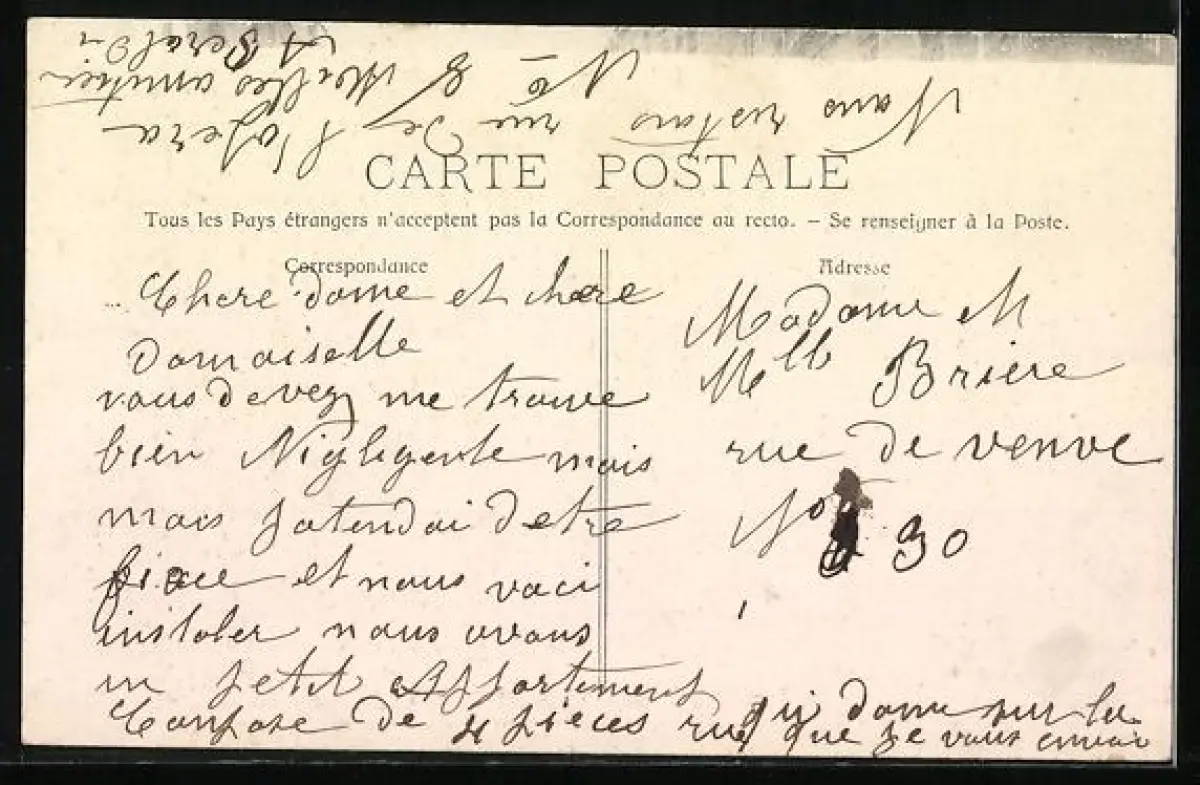 CARTE POSTALE
Tous les Pays étrangers n'acceptent pas la Correspondance au recto. – Se renseigner à la Poste.
Correspondance
Chere dame et chere
Damaiselle
vous devez me trouve
bien Nigligente mais
mais jatendai detre
et nous voci
instaler nous avons
un petit Appartiment
Conpose de 4 pieces qui donne sur la
rue que je vous envoi
Adresse
Madame M
Mlle Briere
rue de venve
No 30
Nous restons rue de l'opera
No 8 Milles amitier